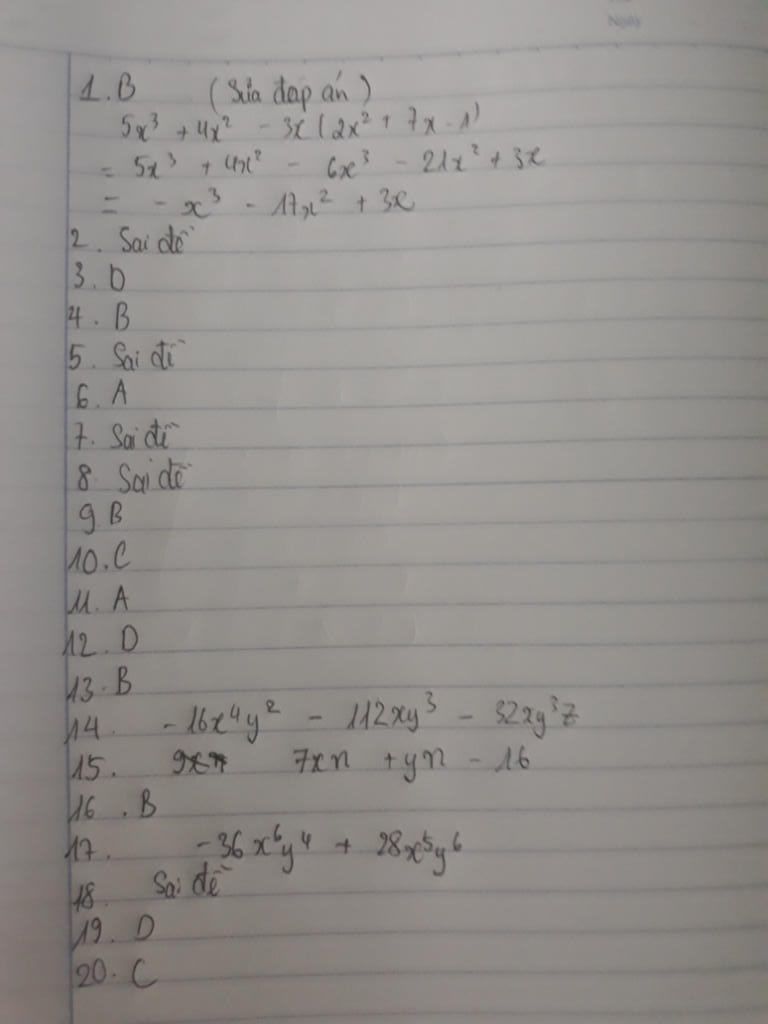 Ngày
1. B (Sửa đáp án)
5x³ + 4x² - 3x (2x² + 7x - 1)
= 5x³ + 4x² - 6x³ - 21x² + 3x
= - x³ - 17x² + 3x
2. Sai đề
3. D
4. B
5. Sai đề
6. A
7. Sai đề
8. Sai đề
9. B
10. C
11. A
12. D
13. B
14. -16x⁴y² - 112xy³ - 32xy³z
15. 7xn + yn - 16
16. B
17. -36x⁶y⁴ + 28x⁵y⁶
18. Sai đề
19. D
20. C